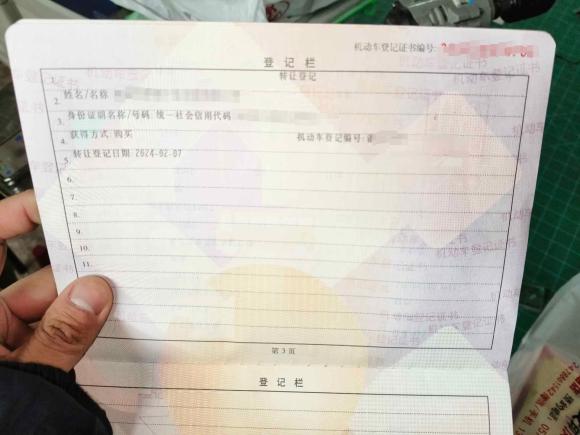 机动车登记证书编号:
登记栏
1. 转让登记
2. 姓名/名称
3. 身份证明名称/号码 统一社会信用代码
4. 获得方式 购买 机动车登记编号:
5. 转让登记日期 2024-02-07
6.
7.
8.
9.
10.
11.
第 3 页
登记栏